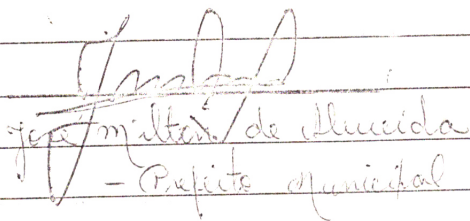 José Milton de Almeida
- Prefeito Municipal